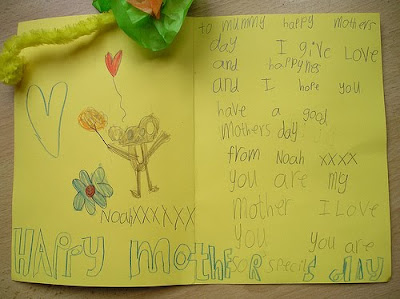 NoahXXXXXX
to mummy happy mothers
day I give LOVE
and happynes
and I hope you
have a good
mothers day
from Noah xxxx
you are my
mother I Love
you. you are
so special
HAppy mother's day